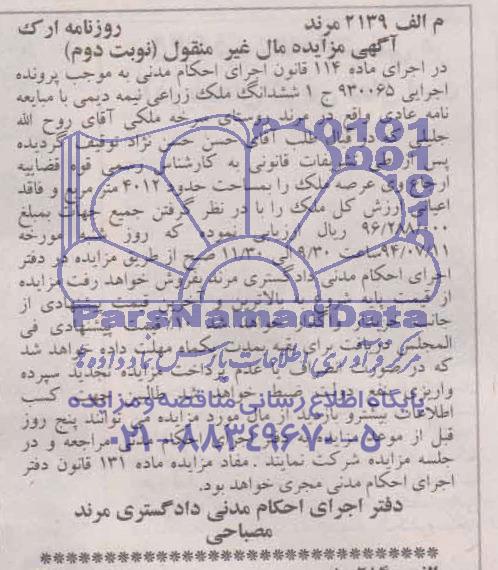 م الف ۲۱۳۹ مرند روزنامه ارک
آگهی مزایده مال غیر منقول (نوبت دوم)
در اجرای ماده ۱۱۴ قانون اجرای احکام مدنی به موجب پرونده
اجرایی ۹۳۰۰۶۵ ج ۱ ششدانگ ملک زراعی نیمه دیمی با مبایعه
نامه عادی واقع در مرند روستای ملکی آقای روح الله
جلیلی که در قبال طلب آقای حسن حسن نژاد توقیف گردیده
پس از طی تشریفات قانونی به کارشناس رسمی قوه قضاییه
ارجاع وی عرصه ملک را بمساحت حدود ۴۰۱۲ متر مربع و فاقد
اعیانی ارزش کل ملک را با در نظر گرفتن جمیع جهات بمبلغ
ریال ارزیابی نموده که روز شنبه مورخه
ساعت ۹/۳۰ الی ۱۱/۳۰ صبح از طریق مزایده در دفتر
اجرای احکام مدنی دادگستری مرند بفروش خواهد رفت مزایده
از قیمت پایه شروع به بالاترین و قیمت پیشنهادی از
جانب خریدار خواهد شد قیمت پیشنهادی فی
المجلس دریافت برای بقیه بمدت یکماه مهلت داده خواهد شد
که در صورت انصراف یا عدم پرداخت مزایده تجدید سپرده
واریزی بنفع دولت ضبط خواهد شد کسب
اطلاعات بیشتر و بازدید از مال مورد مزایده می توانند پنج روز
قبل از موعد مزایده به دفتر اجرای احکام مدنی مراجعه و در
جلسه مزایده شرکت نمایند . مفاد مزایده ماده ۱۳۱ قانون دفتر
اجرای احکام مدنی مجری خواهد بود.
دفتر اجرای احکام مدنی دادگستری مرند
مصباحی
ParsNamadData
مرکز فرآوری اطلاعات پارس نماد داده ها
پایگاه اطلاع رسانی مناقصه و مزایده
۰۲۱-۸۸۳۴۹۶۷۰-۵